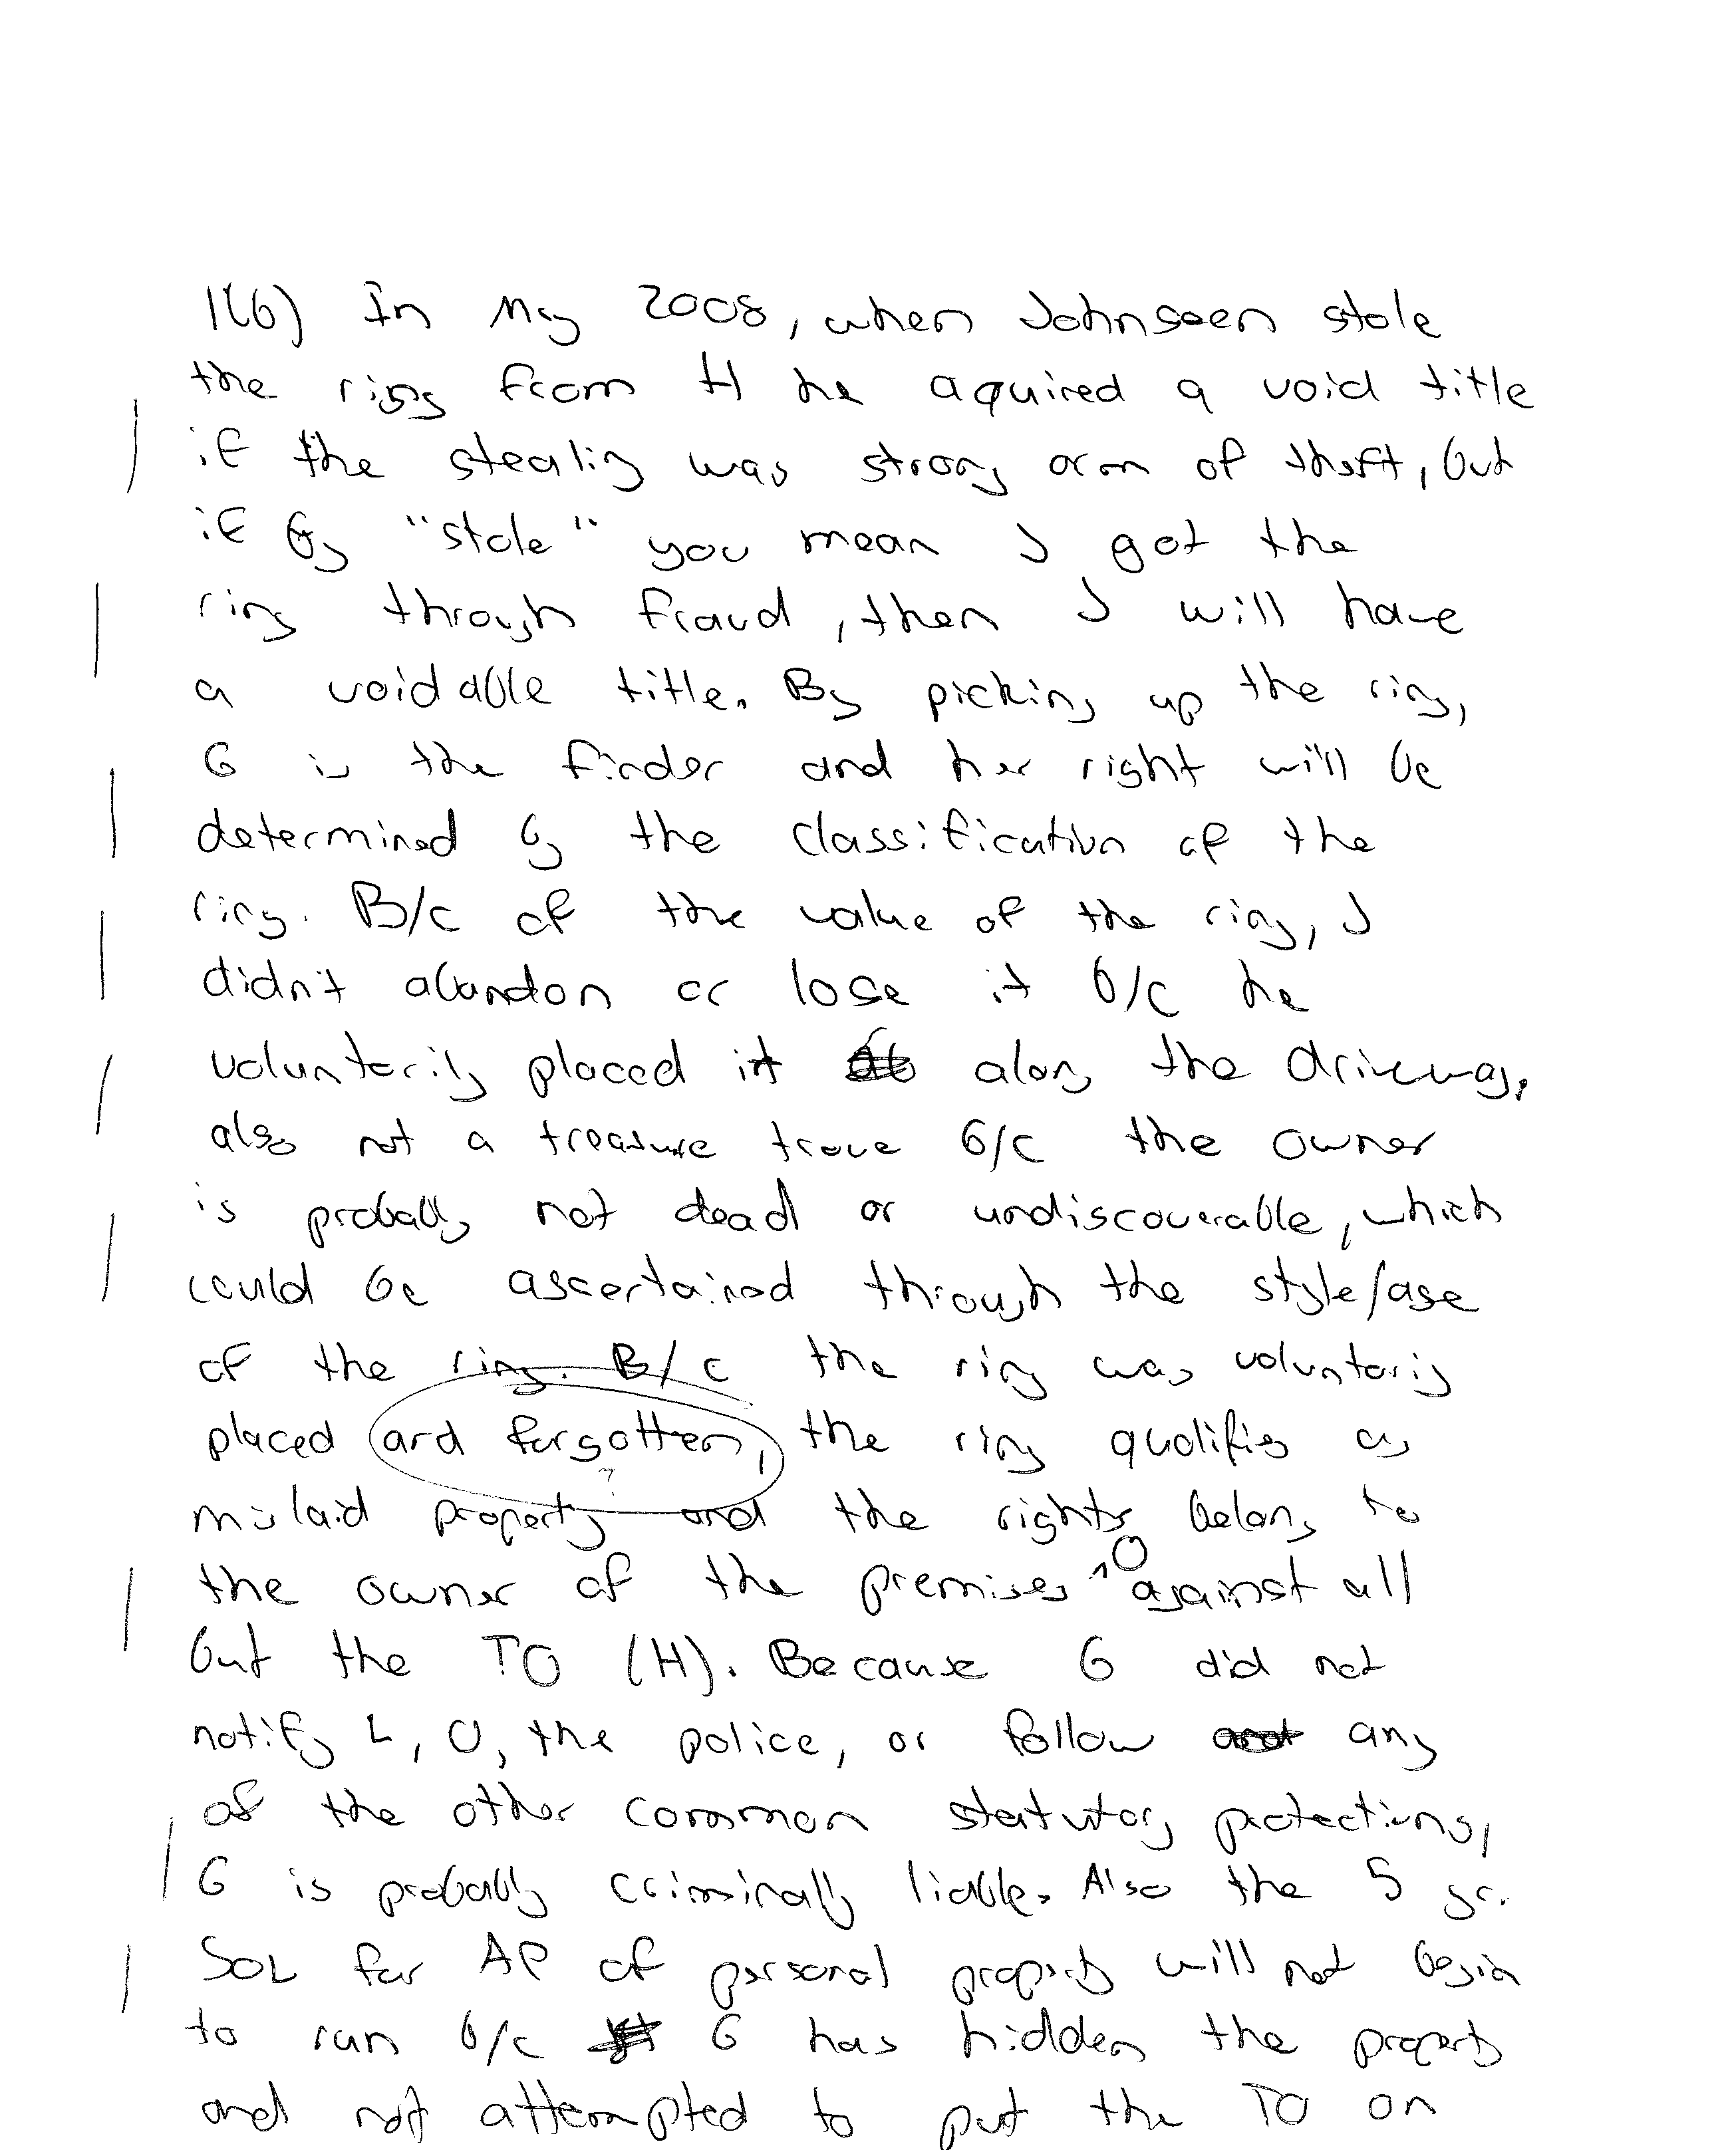 1(b) In May 2008, when Johnseen stole
the ring from H he aquired a void title
if the stealing was strong arm of theft, but
if by "stole" you mean J got the
ring through fraud, then J will have
a voidable title. By picking up the ring,
G is the finder and her right will be
determined by the classification of the
ring. B/c of the value of the ring, J
didn't abandon or lose it b/c he
voluntarily placed it along the driveway,
also not a treasure trove b/c the owner
is probably not dead or undiscoverable, which
could be ascertained through the style/age
of the ring. B/c the ring was voluntarily
placed and forgotten, the ring qualifies as
mislaid property and the rights belong to
the owner of the premises ^O against all
but the TO (H). Because G did not
notify L, O, the police, or follow any
of the other common statutory protections,
G is probably criminally liable. Also the 5 yr.
SOL for AP of personal property will not begin
to run b/c G has hidden the property
and not attempted to put the TO on